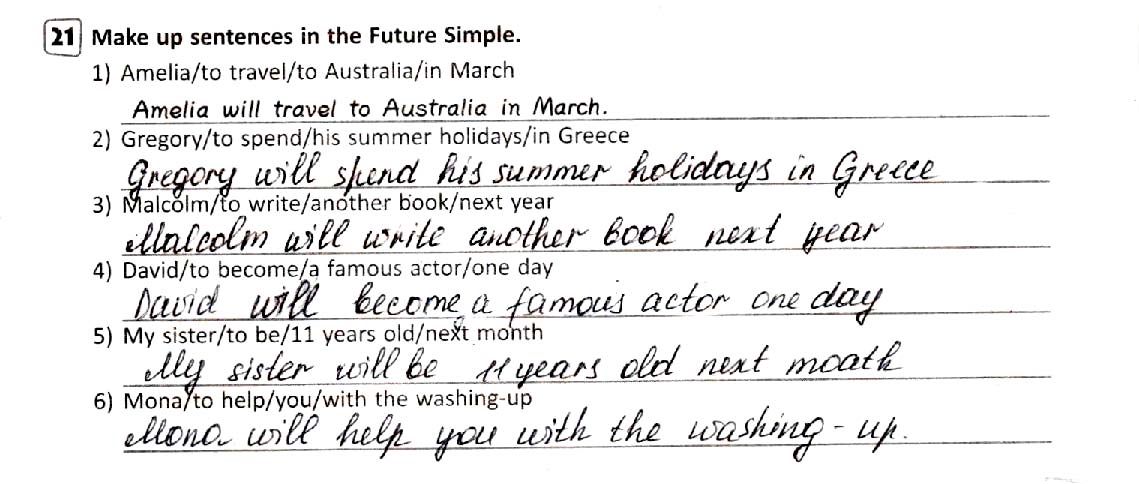 21 Make up sentences in the Future Simple.
1) Amelia/to travel/to Australia/in March
Amelia will travel to Australia in March.
2) Gregory/to spend/his summer holidays/in Greece
Gregory will spend his summer holidays in Greece
3) Malcolm/to write/another book/next year
Malcolm will write another book next year
4) David/to become/a famous actor/one day
David will become a famous actor one day
5) My sister/to be/11 years old/next month
My sister will be 11 years old next moath
6) Mona/to help/you/with the washing-up
Mona will help you with the washing-up.